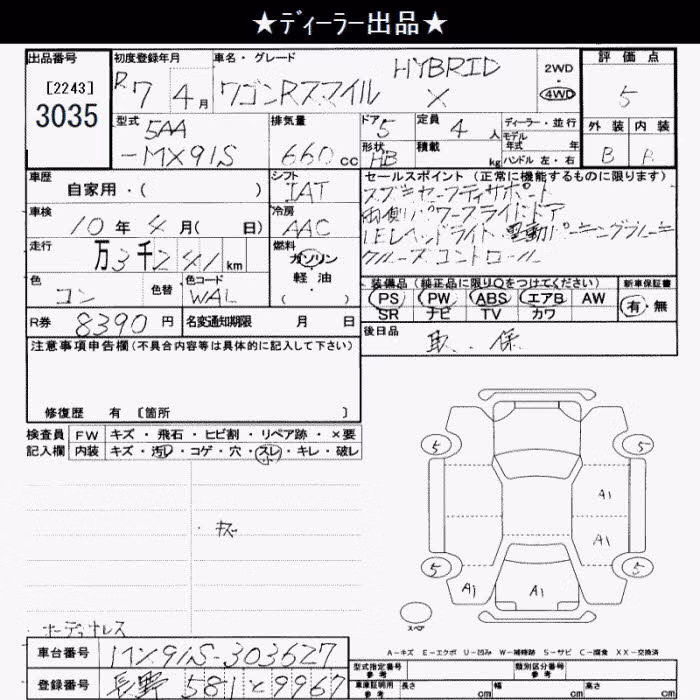 ★ディーラー出品★
出品番号
[2243]
3035
初度登録年月
R7 4月
車名・グレード
ワゴンRスマイル HYBRID X
2WD
4WD
評価点
5
型式
5AA
-MX91S
排気量
660cc
ドア
5
形状
HB
定員
4人
積載
kg
ディーラー・並行
モデル
年式 年
ハンドル 左・右
外装 内装
B
車歴
自家用・( )
シフト
IAT
セールスポイント(正常に機能するものに限ります)
スズキセーフティサポート
両側パワースライドドア
LEDヘッドライト・電動パーキングブレーキ
クルーズコントロール
車検
10年4月( 日)
冷房
AAC
走行
万3千241km
燃料
ガソリン
軽・油
( )
色
コン
色替
色コード
WAL
装備品(純正品に限り○をつけてください)
PS PW ABS エアB AW
SR ナビ TV カワ
新車保証書
有・無
R券
8390円
名変通知期限 月 日
後日品
取.保
注意事項申告欄(不具合内容等は具体的に記入して下さい)
修復歴 有 [箇所 ]
検査員 FW キズ・飛石・ヒビ割・リペア跡・×要
記入欄 内装 キズ・汚れ・コゲ・穴・スレ・キレ・破レ
・キズ
5 5
A1
A1
5 5
A1 A1
スペア
A-キズ E-エクボ U-凹み W-補修跡 S-サビ C-腐食 XX-交換済
車台番号
MX91S-303627
登録番号
長野 581 と 9967
型式指定番号
参考
類別区分番号
参考
車庫証明用
参考
長さ cm 幅 cm 高さ cm